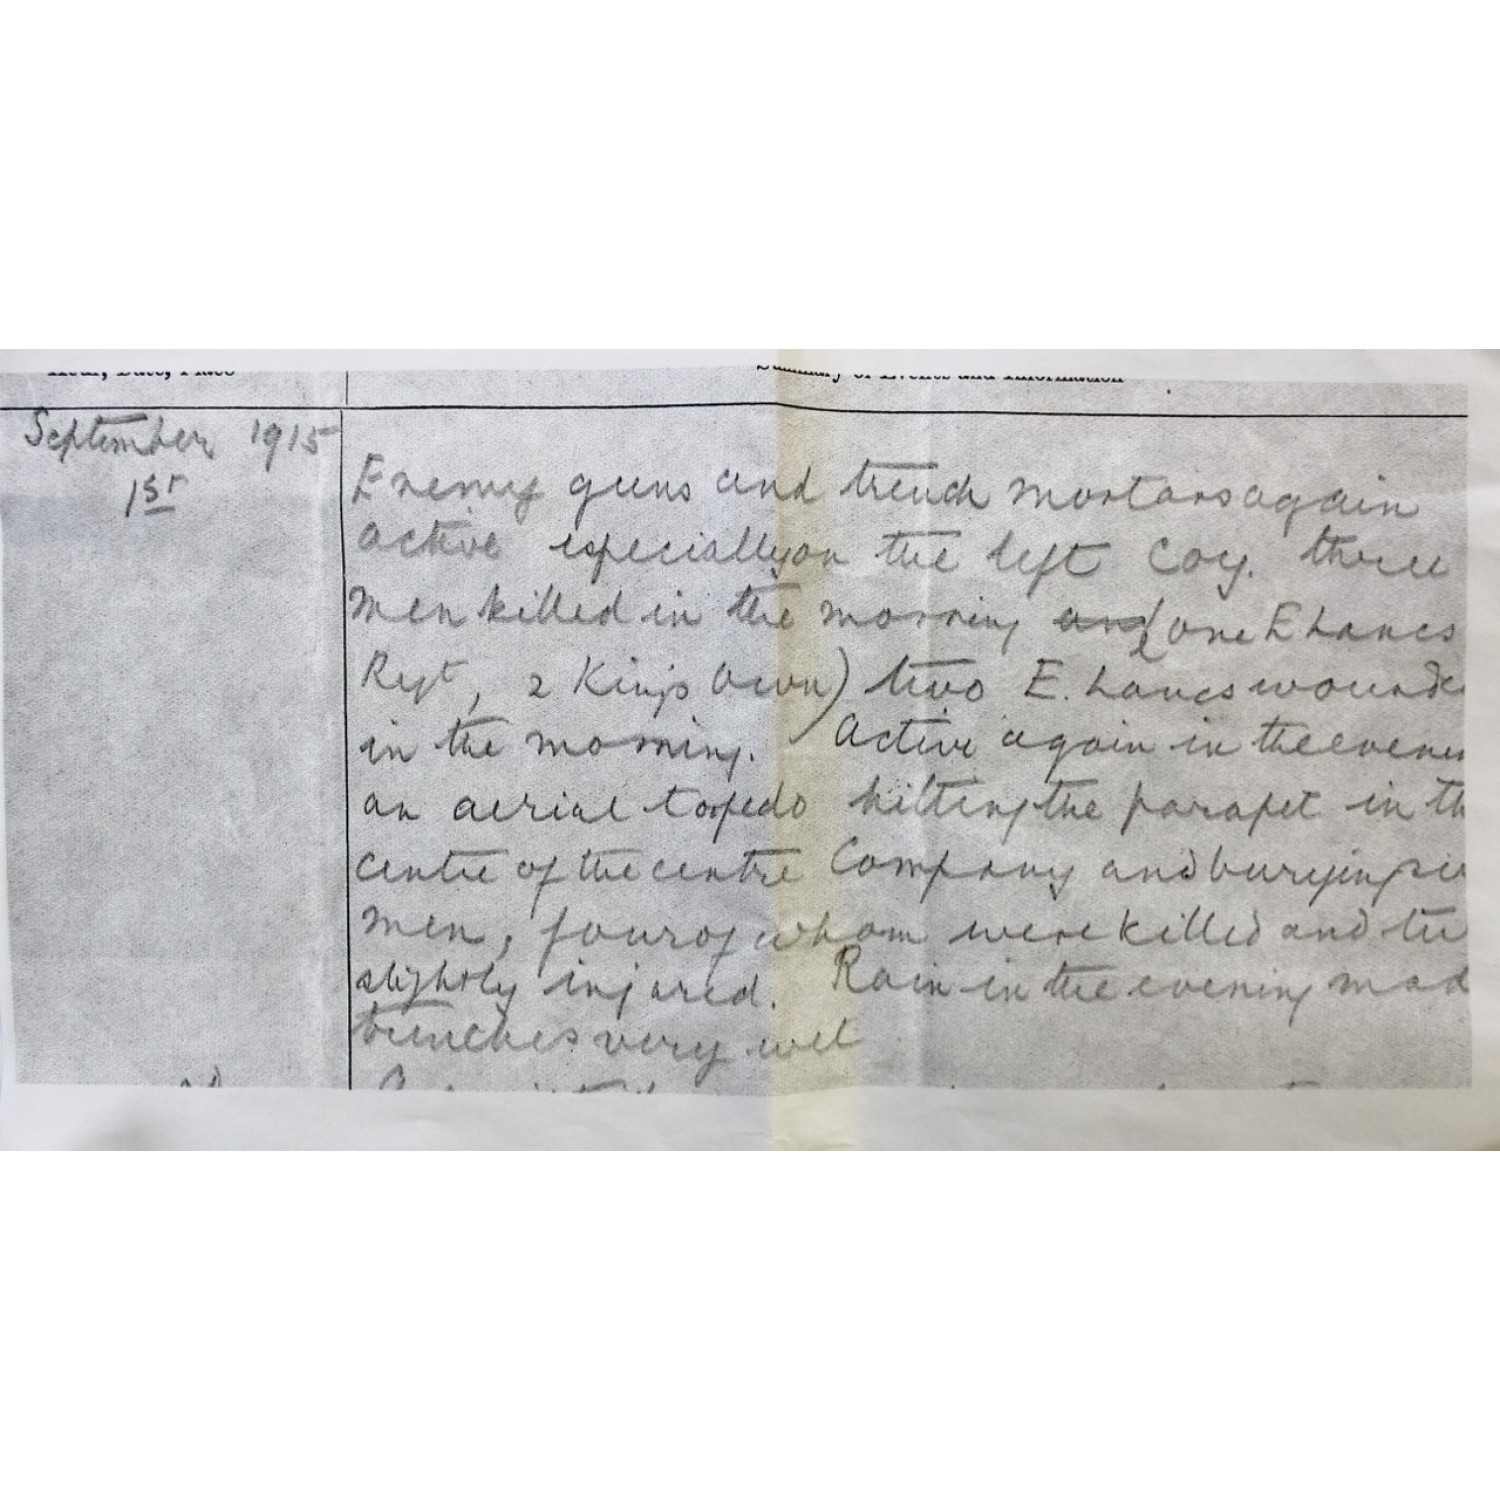 Hour, Date, Place
Summary of Events and Information
September 1915
1st
Enemy guns and trench mortars again
active especially on the left Coy. three
men killed in the morning and (one E Lancs
Regt, 2 Kings Own) two E. Lancs wounde
in the morning. Active again in the evenin
an aerial torpedo hitting the parapet in th
centre of the centre Company and burying
men, four of whom were killed and
slightly injured. Rain in the evening mad
trenches very wet